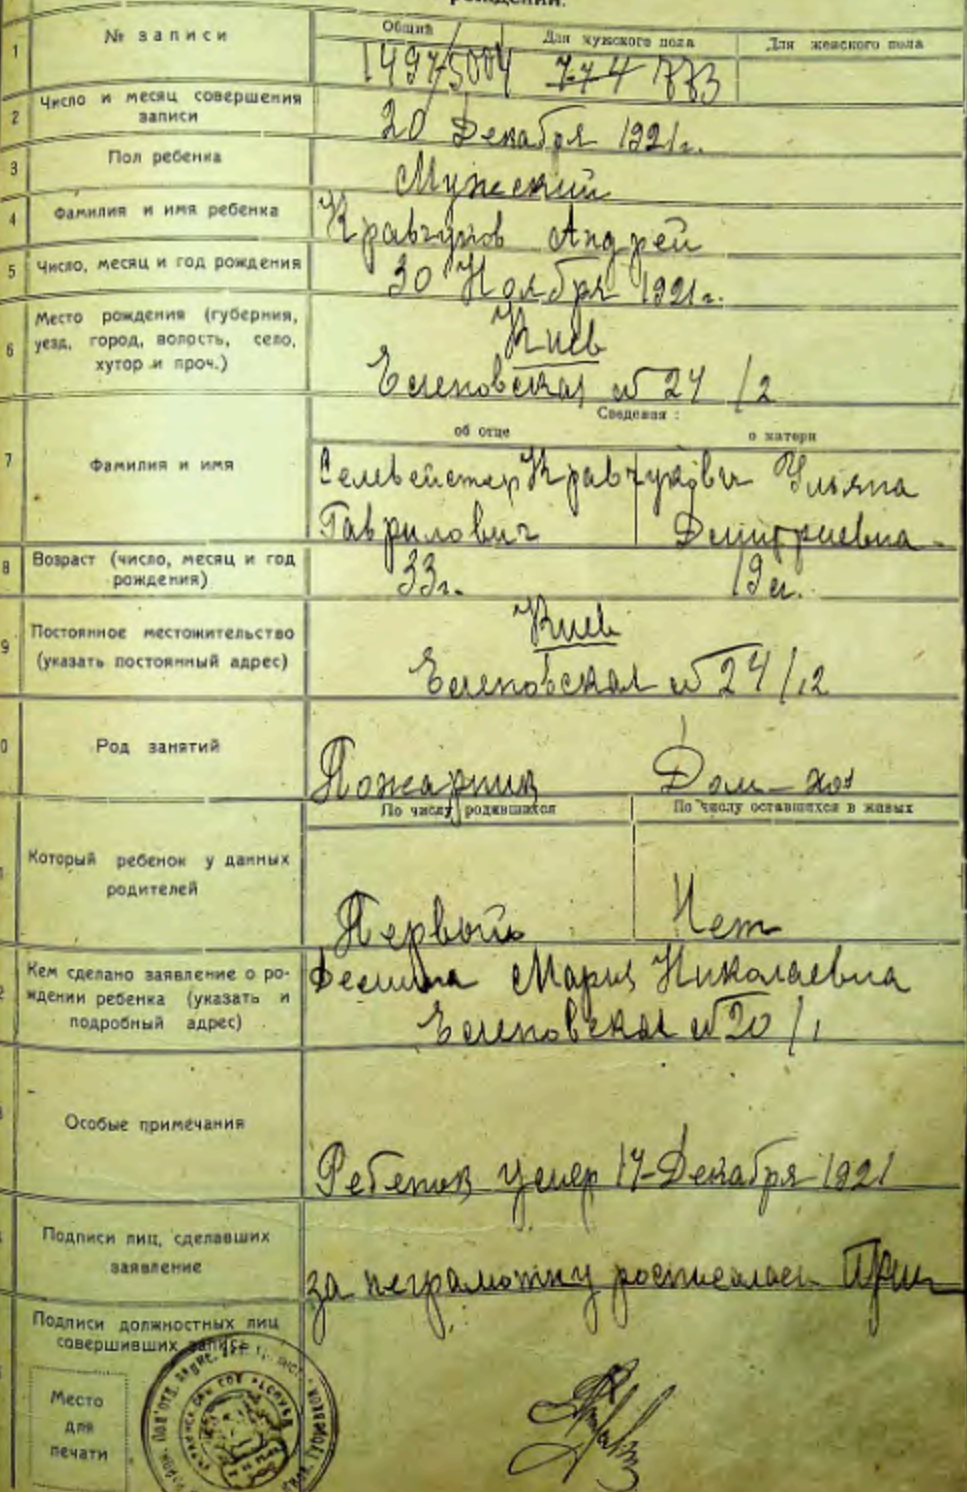 рождении.
1 № записи Общий Для мужского пола Для женского пола
1497/5004 774 883
2 Число и месяц совершения записи
20 Декабря 1921г.
3 Пол ребенка
Мужеский
4 Фамилия и имя ребенка
Кравчуков Андрей
5 Число, месяц и год рождения
30 Ноября 1921г.
6 Место рождения (губерния,
уезд, город, волость, село,
хутор и проч.)
Киев
№ 24 /2
Сведения:
об отце о матери
7 Фамилия и имя
Кравчуковы Ульяна
Гаврилович Дмитриевна
8 Возраст (число, месяц и год
рождения)
33г. 19 л.
9 Постоянное местожительство
(указать постоянный адрес)
Киев
№ 24/12
0 Род занятий
Пожарник Дом-хоз
По числу родившихся По числу оставшихся в живых
Который ребенок у данных
родителей
Первый Нет
Кем сделано заявление о ро-
ждении ребенка (указать и
подробный адрес)
Мария Николаевна
№ 20/1
Особые примечания
Ребенок умер 17-Декабря 1921
Подписи лиц, сделавших
заявление
за неграмотну росписалась
Подписи должностных лиц
совершивших запись
Место
для
печати